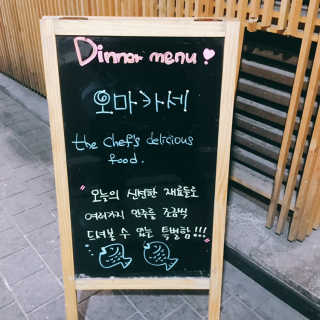 Dinner menu!
오마카세
the chef's delicious
food.
오늘의 신선한 재료들로
여러가지 안주를 조금씩
드셔볼 수 있는 특별함!!!